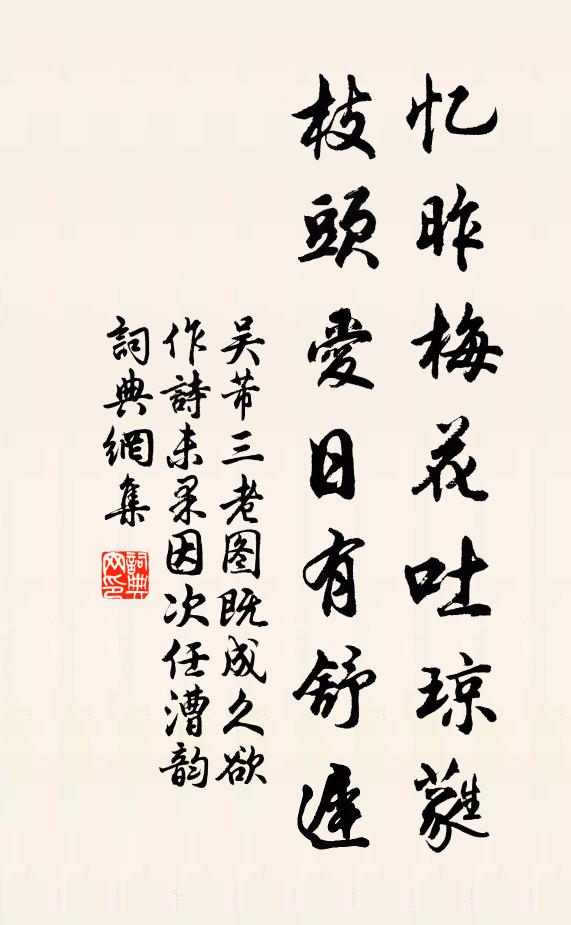 忆昨梅花吐琼蕤
枝頭愛日有舒遲
吴芾三老图既成久欲
作詩未果因次任漕韵
詞典網集
詞典网印